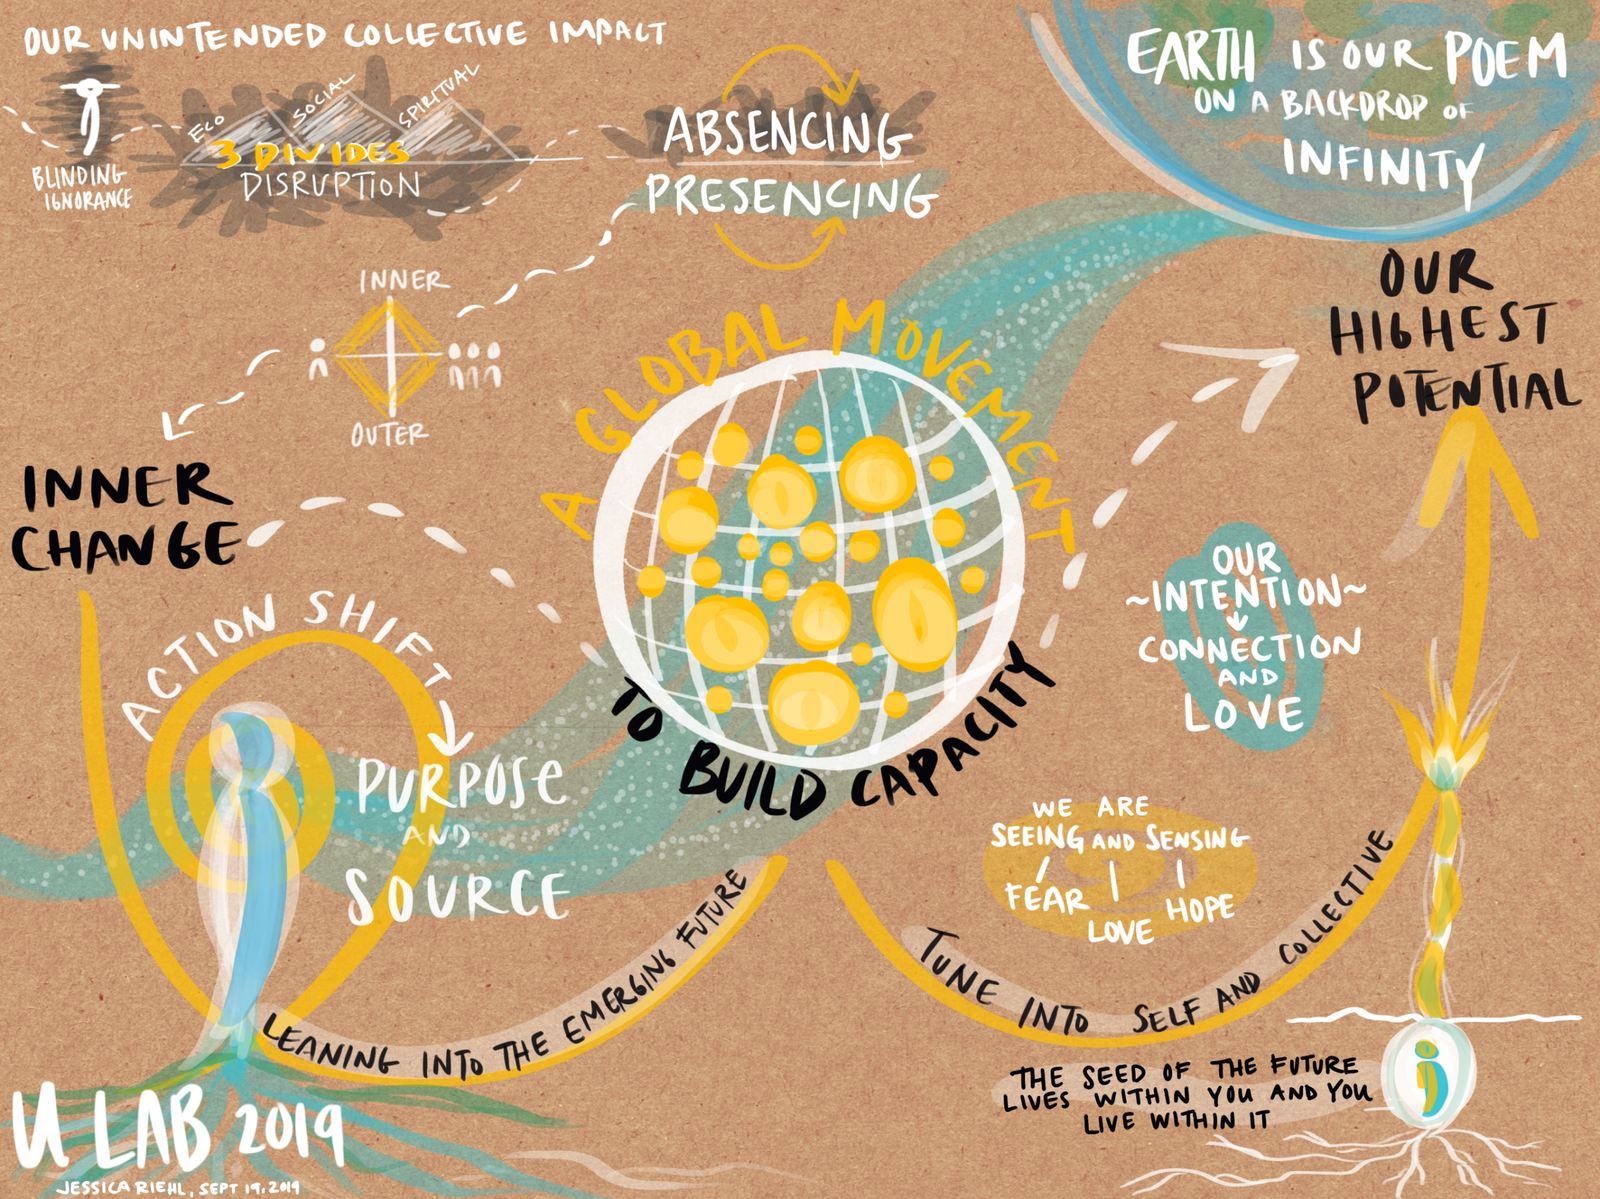 OUR UNINTENDED COLLECTIVE IMPACT
BLINDING
IGNORANCE
ECO
SOCIAL
SPIRITUAL
3 DIVIDES
DISRUPTION
ABSENCING
PRESENCING
EARTH IS OUR POEM
ON A BACKDROP OF
INFINITY
OUR
HIGHEST
POTENTIAL
INNER
OUTER
INNER
CHANGE
A GLOBAL MOVEMENT
TO BUILD CAPACITY
ACTION SHIFT
PURPOSE
AND
SOURCE
OUR
~INTENTION~
CONNECTION
AND
LOVE
WE ARE
SEEING AND SENSING
FEAR
LOVE
HOPE
LEANING INTO THE EMERGING FUTURE
TUNE INTO SELF AND COLLECTIVE
THE SEED OF THE FUTURE
LIVES WITHIN YOU AND YOU
LIVE WITHIN IT
U LAB 2019
JESSICA RIEHL, SEPT 19, 2019